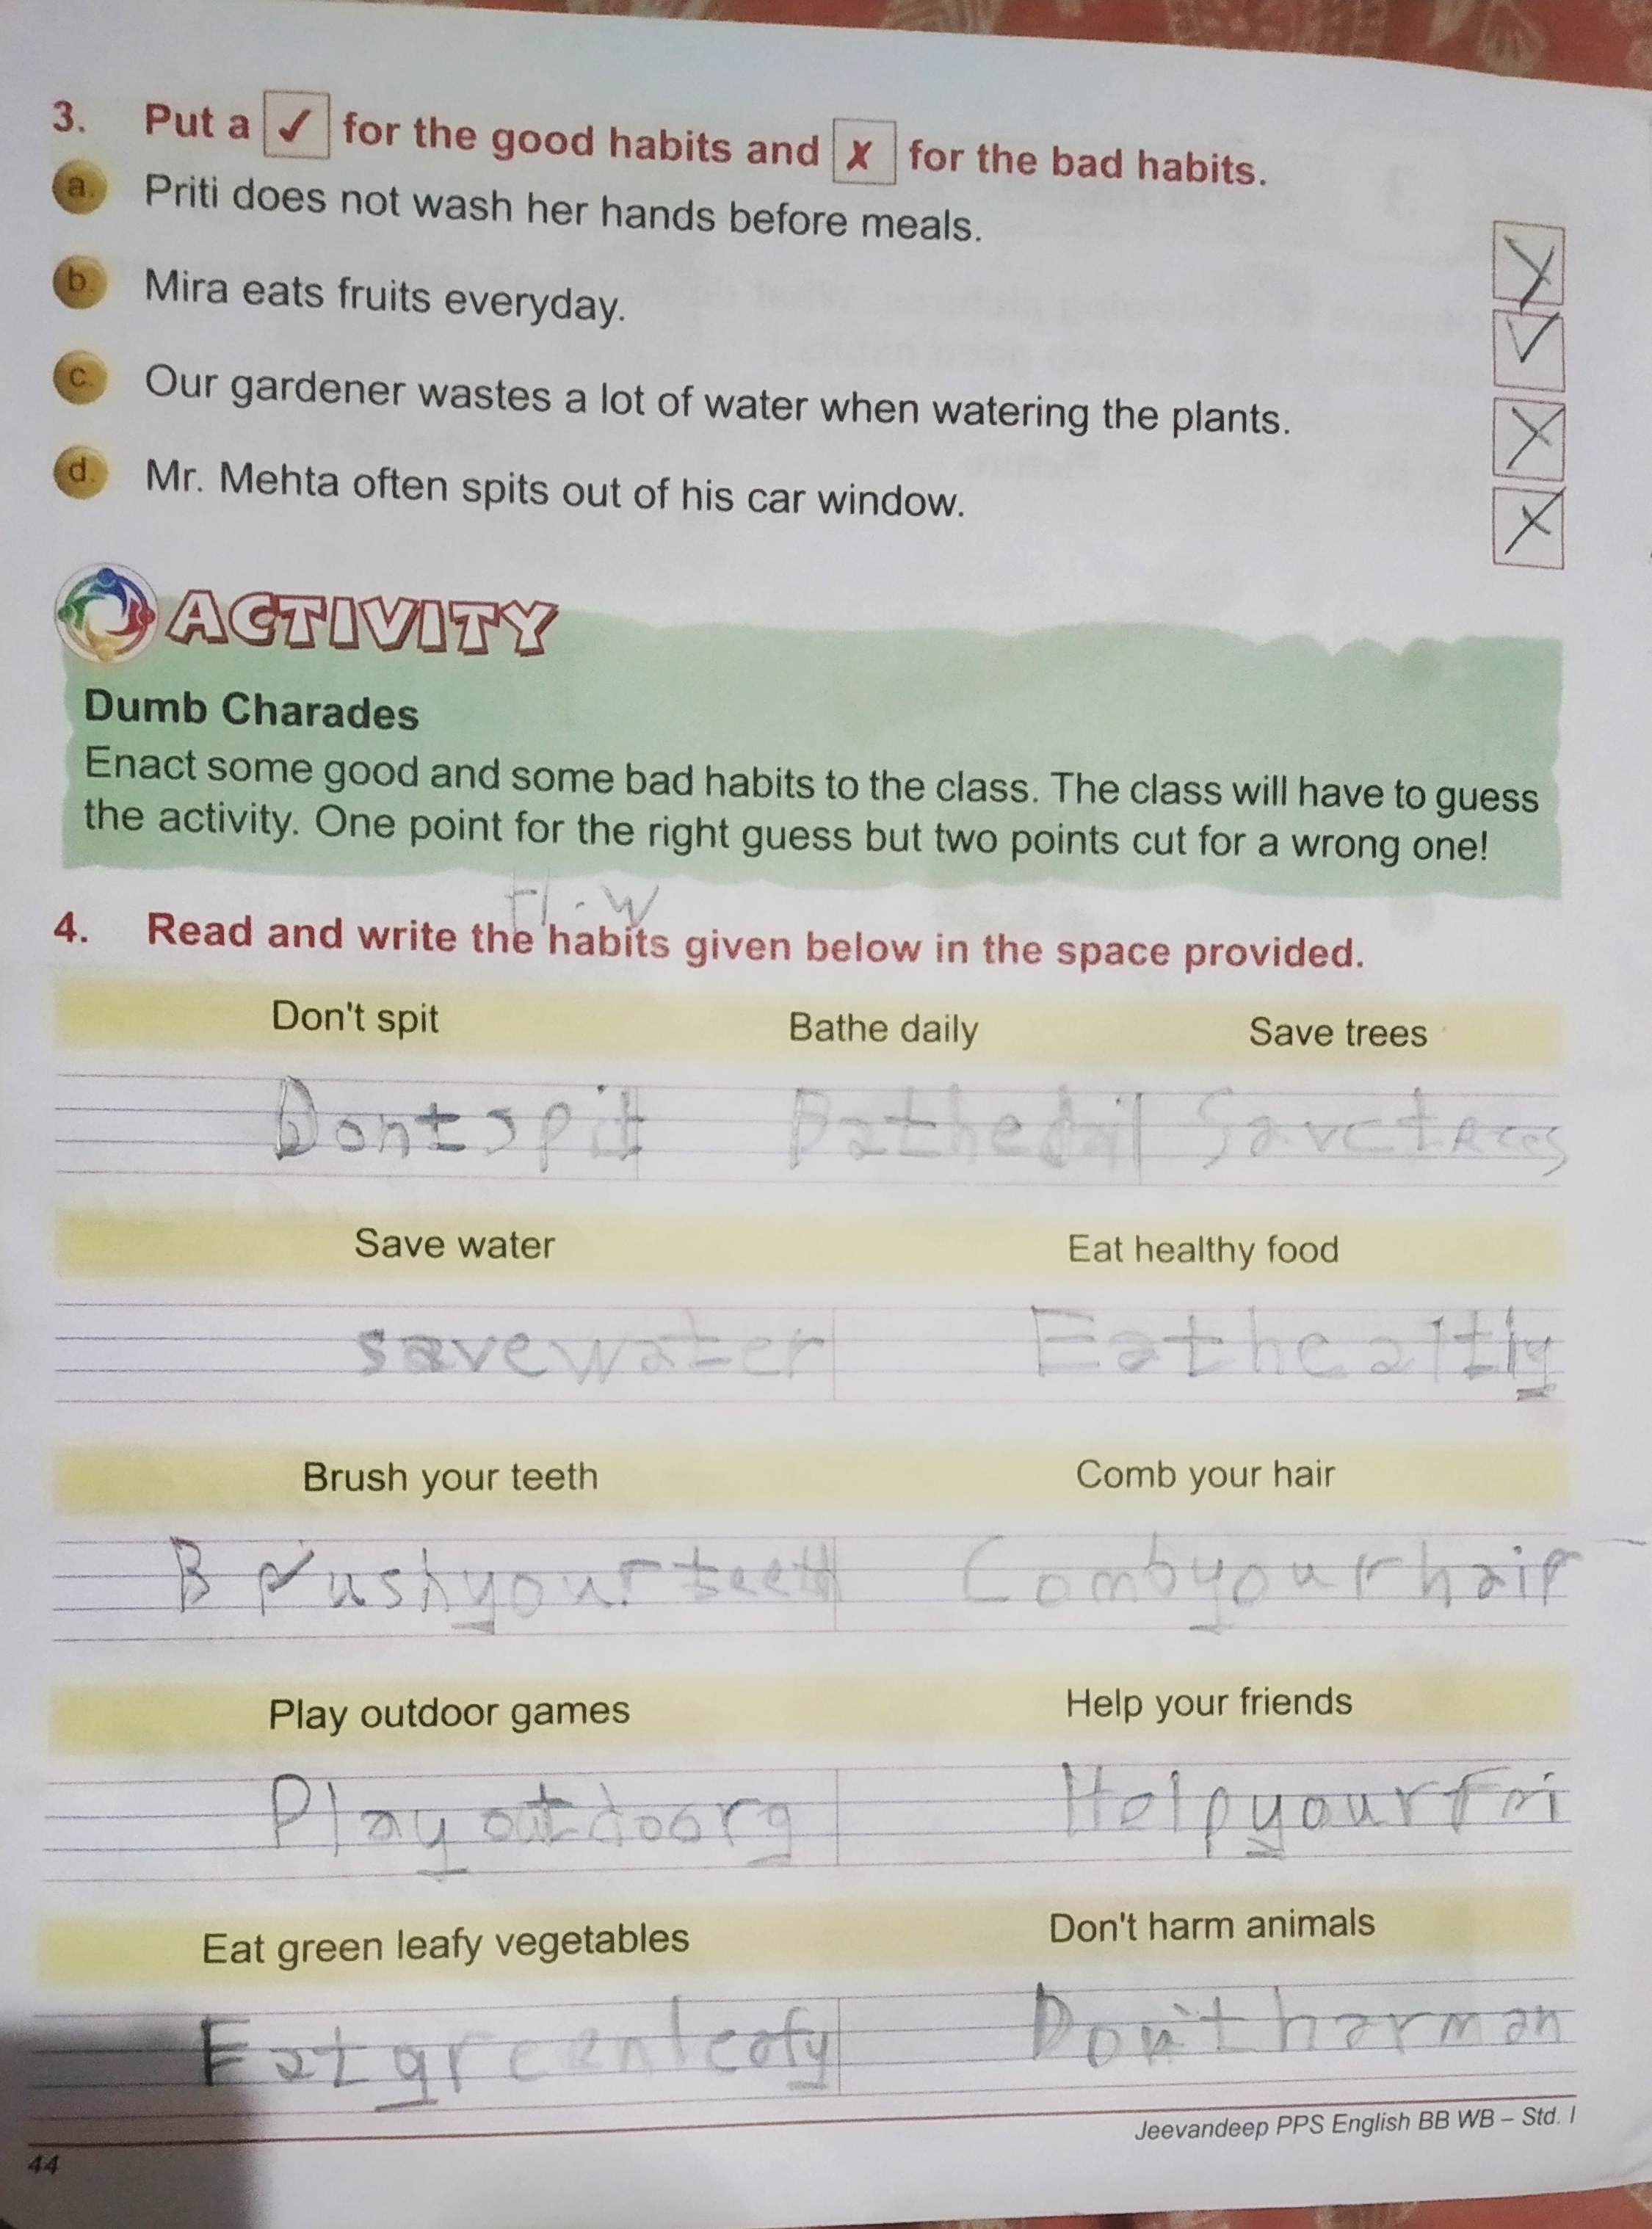 3. Put a ✓ for the good habits and ✗ for the bad habits.
a. Priti does not wash her hands before meals. ✗
b. Mira eats fruits everyday. ✓
c. Our gardener wastes a lot of water when watering the plants. ✗
d. Mr. Mehta often spits out of his car window. ✗
ACTIVITY
Dumb Charades
Enact some good and some bad habits to the class. The class will have to guess
the activity. One point for the right guess but two points cut for a wrong one!
H.W
4. Read and write the habits given below in the space provided.
Don't spit Bathe daily Save trees
Dont spit Bathe dail Save trees
Save water Eat healthy food
save water Eat healthy
Brush your teeth Comb your hair
Brush your teeth Comb your hair
Play outdoor games Help your friends
Play outdoor g Help your fri
Eat green leafy vegetables Don't harm animals
Eat green leafy Don't harm an
Jeevandeep PPS English BB WB – Std. I
44